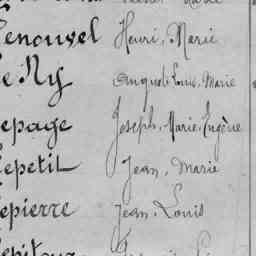 enouvel Henri, Marie
e Ny Auguste Louis, Marie
epage Joseph, Marie, Eugène
epetit Jean, Marie
epierre Jean, Louis